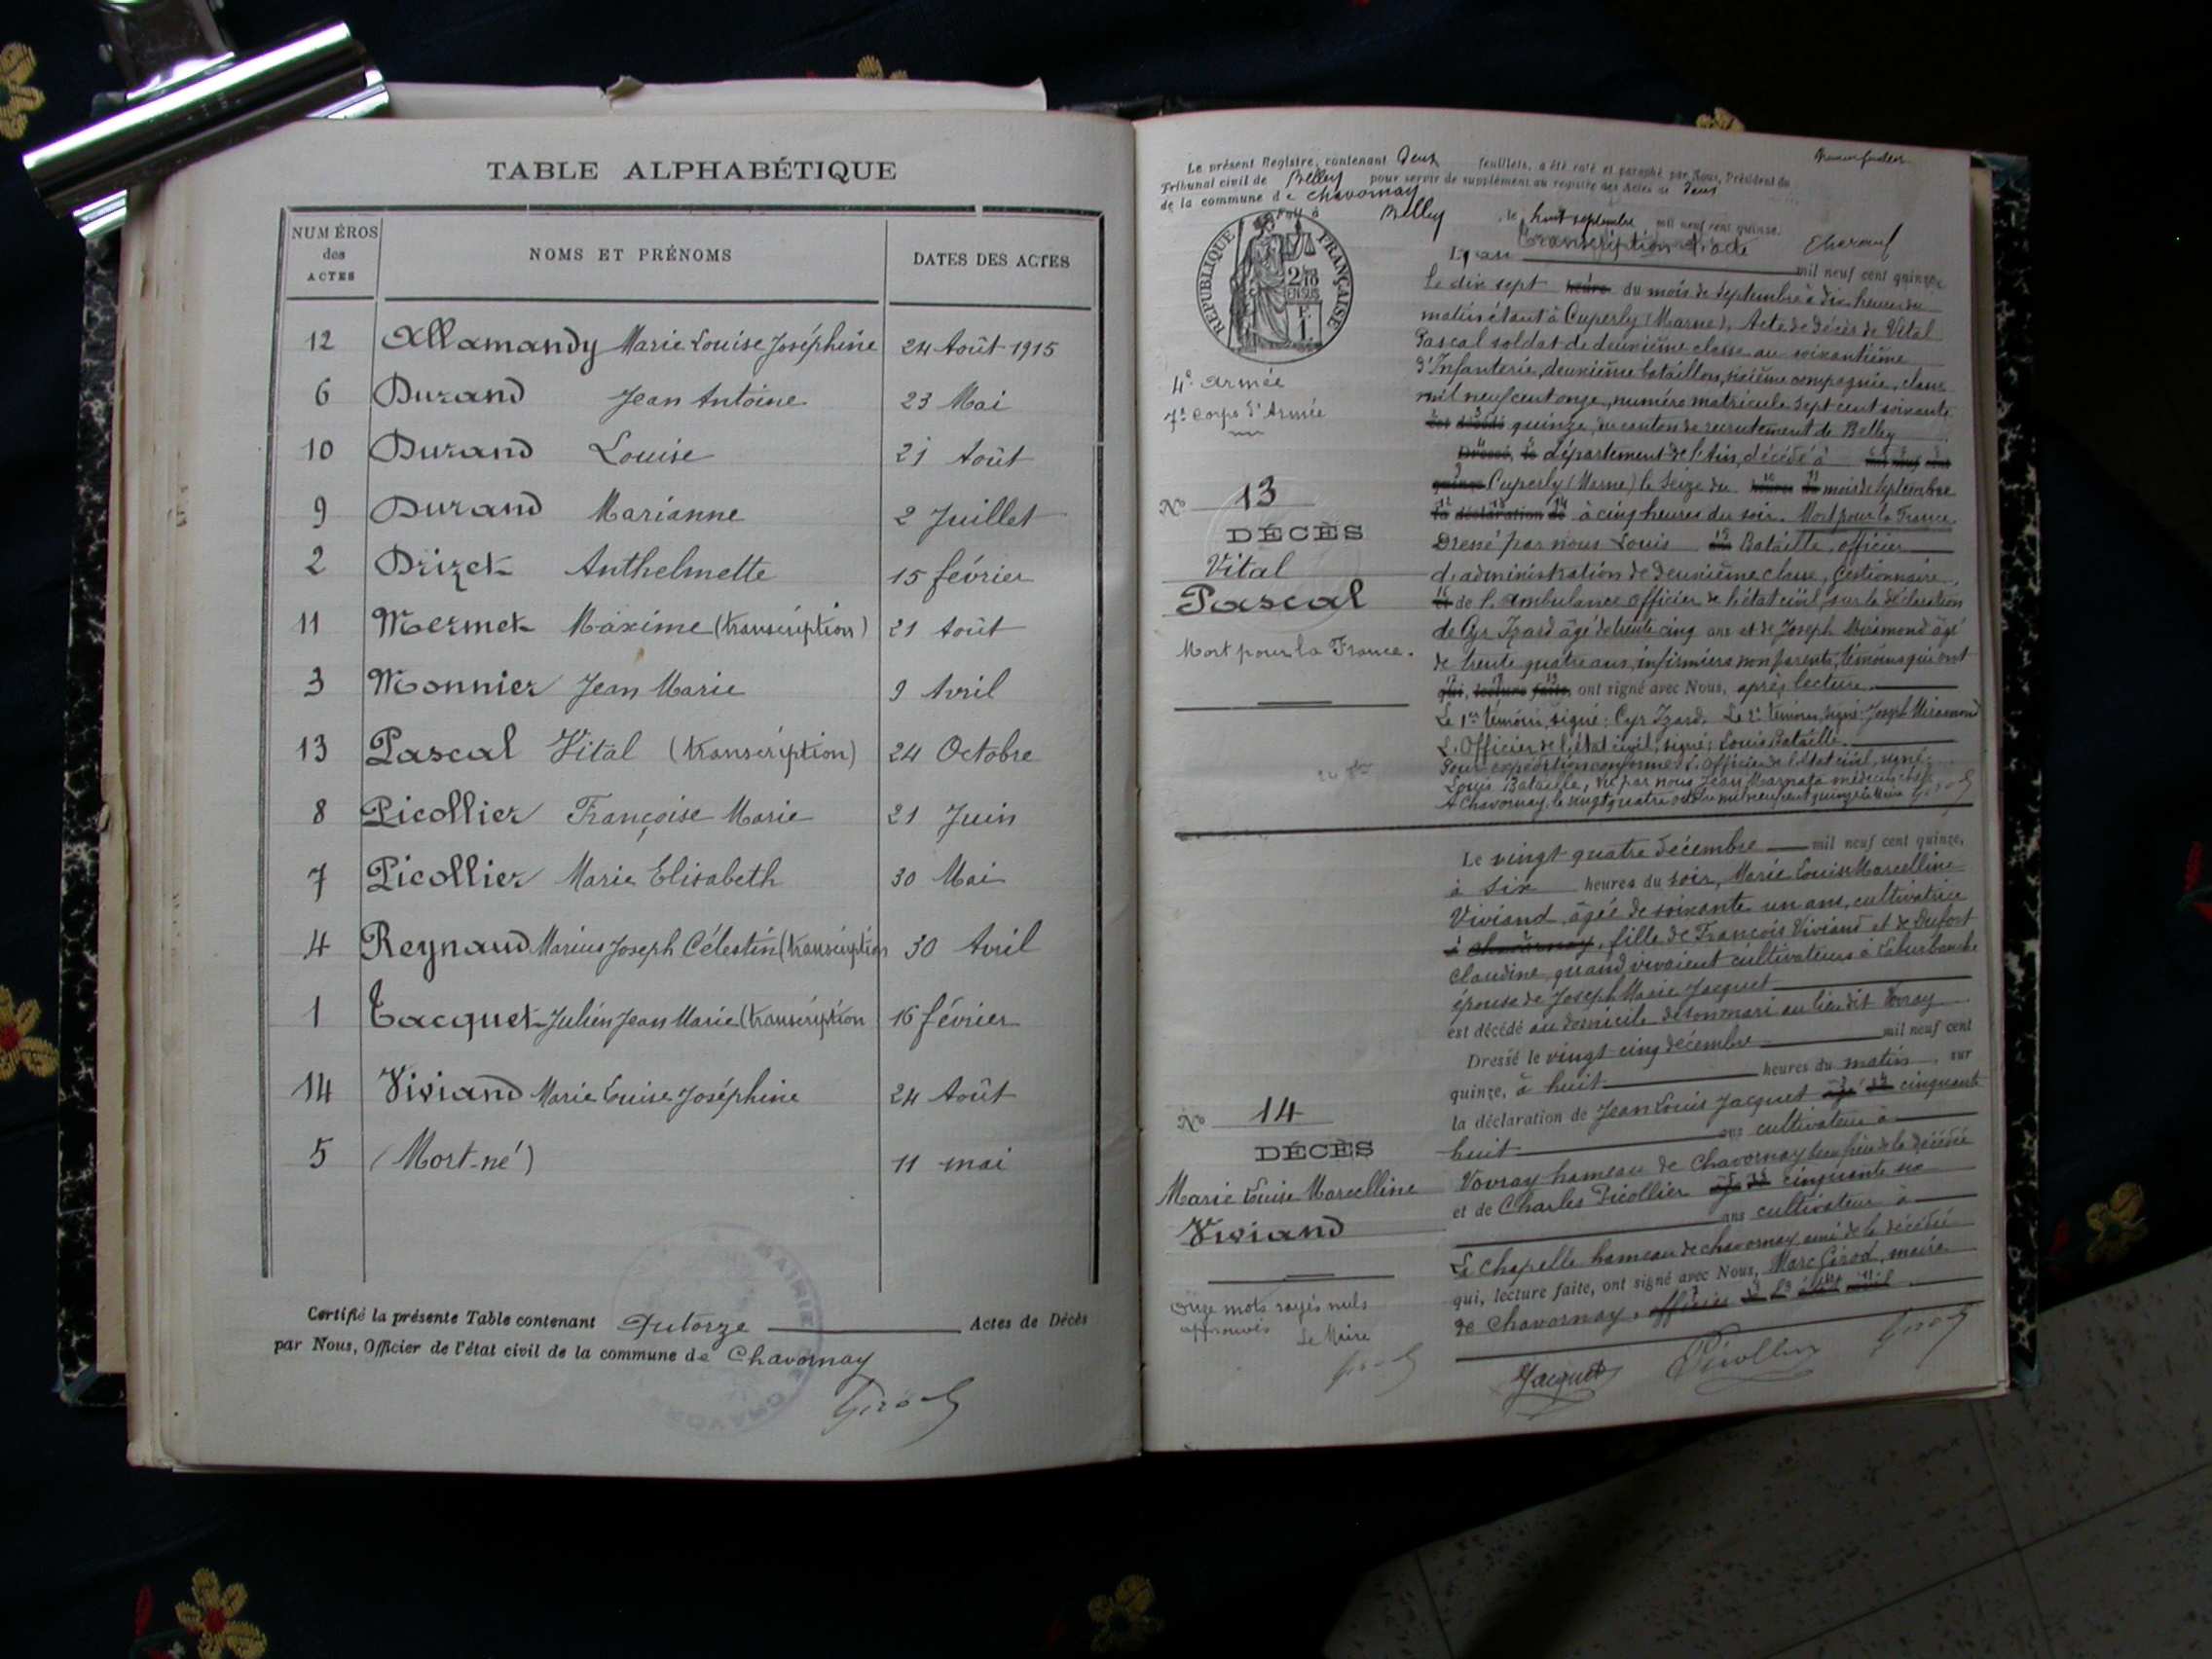 TABLE ALPHABÉTIQUE
NUMÉROS des ACTES NOMS ET PRÉNOMS DATES DES ACTES
12 Allamandy Marie Louise Joséphine 24 Août 1915
6 Durand Jean Antoine 23 Mai
10 Durand Louise 21 Août
9 Durand Marianne 2 Juillet
2 Drizet Anthelmette 15 février
11 Mermet Maxime (transcription) 21 Août
3 Monnier Jean Marie 9 Avril
13 Pascal Vital (transcription) 24 Octobre
8 Picollier Françoise Marie 21 Juin
7 Picollier Marie Elisabeth 30 Mai
4 Reynaud Marius Joseph Célestin (transcription 30 Avril
1 Tacquet Julien Jean Marie (transcription 16 février
14 Viviand Marie Louise Joséphine 24 Août
5 (Mort-né) 11 mai
Certifié la présente Table contenant Quatorze Actes de Décès
par Nous, Officier de l'état civil de la commune de Chavornay
Girod
MAIRIE DE CHAVORNAY
Le présent Registre, contenant deux feuillets, a été coté et paraphé par Nous, Président du
Tribunal civil de Belley pour servir de supplément au registre des Actes de
de la commune de Chavornay
Fait à Belley, le huit septembre mil neuf cent quinze.
RÉPUBLIQUE FRANÇAISE
2/10 EN SUS
F. 1
4e Armée
7e Corps d'Armée
No 13
DÉCÈS
Vital
Pascal
Mort pour la France.
Transcription d'acte
L'an mil neuf cent quinze
le dix sept heure du mois de Septembre à dix heures du
matin étant à Cuperly (Marne), Acte de décès de Vital
Pascal soldat de deuxième classe au soixantième
d'Infanterie, deuxième bataillon, sixième compagnie, classe
mil neuf cent onze, numéro matricule sept cent soixante
quinze, du canton de recrutement de Belley
département de l'Ain, décédé à
Cuperly (Marne) le seize du mois de Septembre
la déclaration de à cinq heures du soir. Mort pour la France.
Dressé par nous Louis Bataille, officier
d'administration de deuxième classe, Gestionnaire
de l'ambulance officier de l'état civil, sur la déclaration
de Cyr Izard âgé de trente cinq ans et de Joseph Miramond âgé
de trente quatre ans, infirmiers non parents, témoins qui ont
qui, lecture faite, ont signé avec Nous, après lecture.
Le 1er témoin, signé: Cyr Izard. Le 2e témoin, signé: Joseph Miramond
L'Officier de l'état civil, signé: Louis Bataille.
Pour expédition conforme, L'Officier de l'état civil, signé:
Louis Bataille, Vu par nous Jean médecin chef
A Chavornay, le vingt quatre octobre mil neuf cent quinze Le Maire Girod
No 14
DÉCÈS
Marie Louise Marcelline
Viviand
Onze mots rayés nuls
approuvés
Le Maire
Girod
Le vingt quatre décembre mil neuf cent quinze,
à six heures du soir, Marie Louise Marcelline
Viviand, âgée de soixante un ans, cultivatrice
à Chavornay, fille de François Viviand et de Dufort
Claudine, quand vivaient cultivateurs à
épouse de Joseph Marie Jacquet
est décédé au domicile de son mari au lieu dit Vovray
Dressé le vingt cinq décembre mil neuf cent
quinze, à huit heures du matin, sur
la déclaration de Jean Louis Jacquet cinquante
huit ans cultivateur à
Vovray hameau de Chavornay beau frère de la décédée
et de Charles Picollier cinquante six
ans cultivateur à
La Chapelle hameau de Chavornay ami de la décédée
qui, lecture faite, ont signé avec Nous, Marc Girod, maire
de Chavornay, officier de l'état civil
Jacquet Picollier Girod